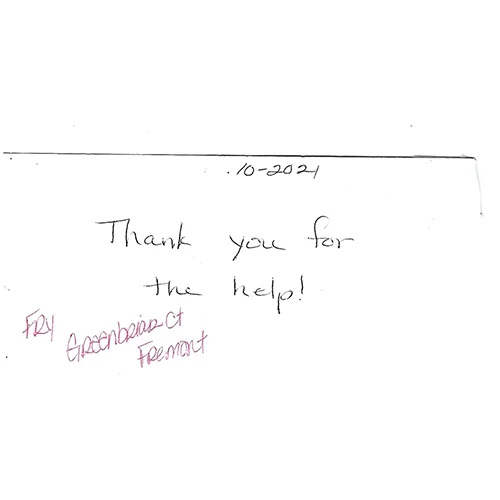 10-2021
Thank you for
the help!
FRY
Greenbriar Ct
Fremont